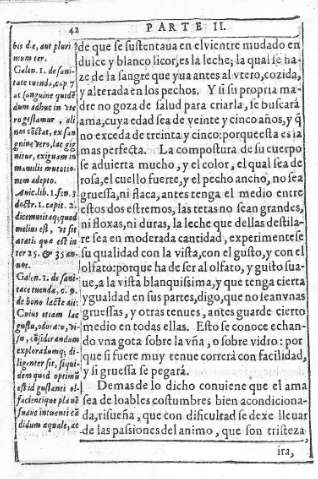 42
PARTE II.
bis dæ, aut pluri
mum ter.
Galen. 1. de sani
tate tuenda, c. 7.
at sanguine quidē
dum adhuc in vte
ro gestamur, ali
nas
guine vero, lac gig
nitur, exiguam in
mutatio
nem adepto.
Auic. lib. 1. fen. 3.
doctr. 1. capit. 2.
dicemus itaq; quod
melius est, vt sit
ætatis quæ est in
ter 25. & 35 an
nos.
Galen. 1. de sani
tate tuendæ, c. 9.
de bono lacte ait:
Cuius etiam lac
gustu, odoratu, vi
su, cōsiderandum
exploradumq; di-
ligenter sit, siqui
dem quod optimū
est id gustanti ol-
facientique planè
suaue intuenti cā
didum æquale, ac
de que se sustentaua en el vientre mudado en
dulce y blanco licor, es la leche; la qual se ha-
ze de la sangre que yua antes al vtero, cozida,
y alterada en los pechos. Y si su propria ma-
dre no goza de salud para criarla, se buscará
ama, cuya edad sea de veinte y cinco años, y q̄
no exceda de treinta y cinco: porque esta es la
mas perfecta. La compostura de su cuerpo
se aduierta mucho, y el color, el qual sea de
rosa, el cuello fuerte, y el pecho ancho, no sea
gruessa, ni flaca, antes tenga el medio entre
estos dos estremos, las tetas no sean grandes,
ni floxas, ni duras, la leche que dellas destila-
re sea en moderada cantidad, experimentese
su qualidad con la vista, con el gusto, y con el
olfato: porque ha de ser al olfato, y gusto sua-
ue, a la vista blanquissima, y que tenga cierta
ygualdad en sus partes, digo, que no sean vnas
gruessas, y otras tenues, antes guarde cierto
medio en todas ellas. Esto se conoce echan-
do vna gota sobre la vña, o sobre vidro: por
que si fuere muy tenue correrà con facilidad,
y si gruessa se pegará.
Demas de lo dicho conuiene que el ama
sea de loables costumbres bien acondiciona-
da, risueña, que con dificultad se dexe lleuar
de las passiones del animo, que son tristeza
ira,